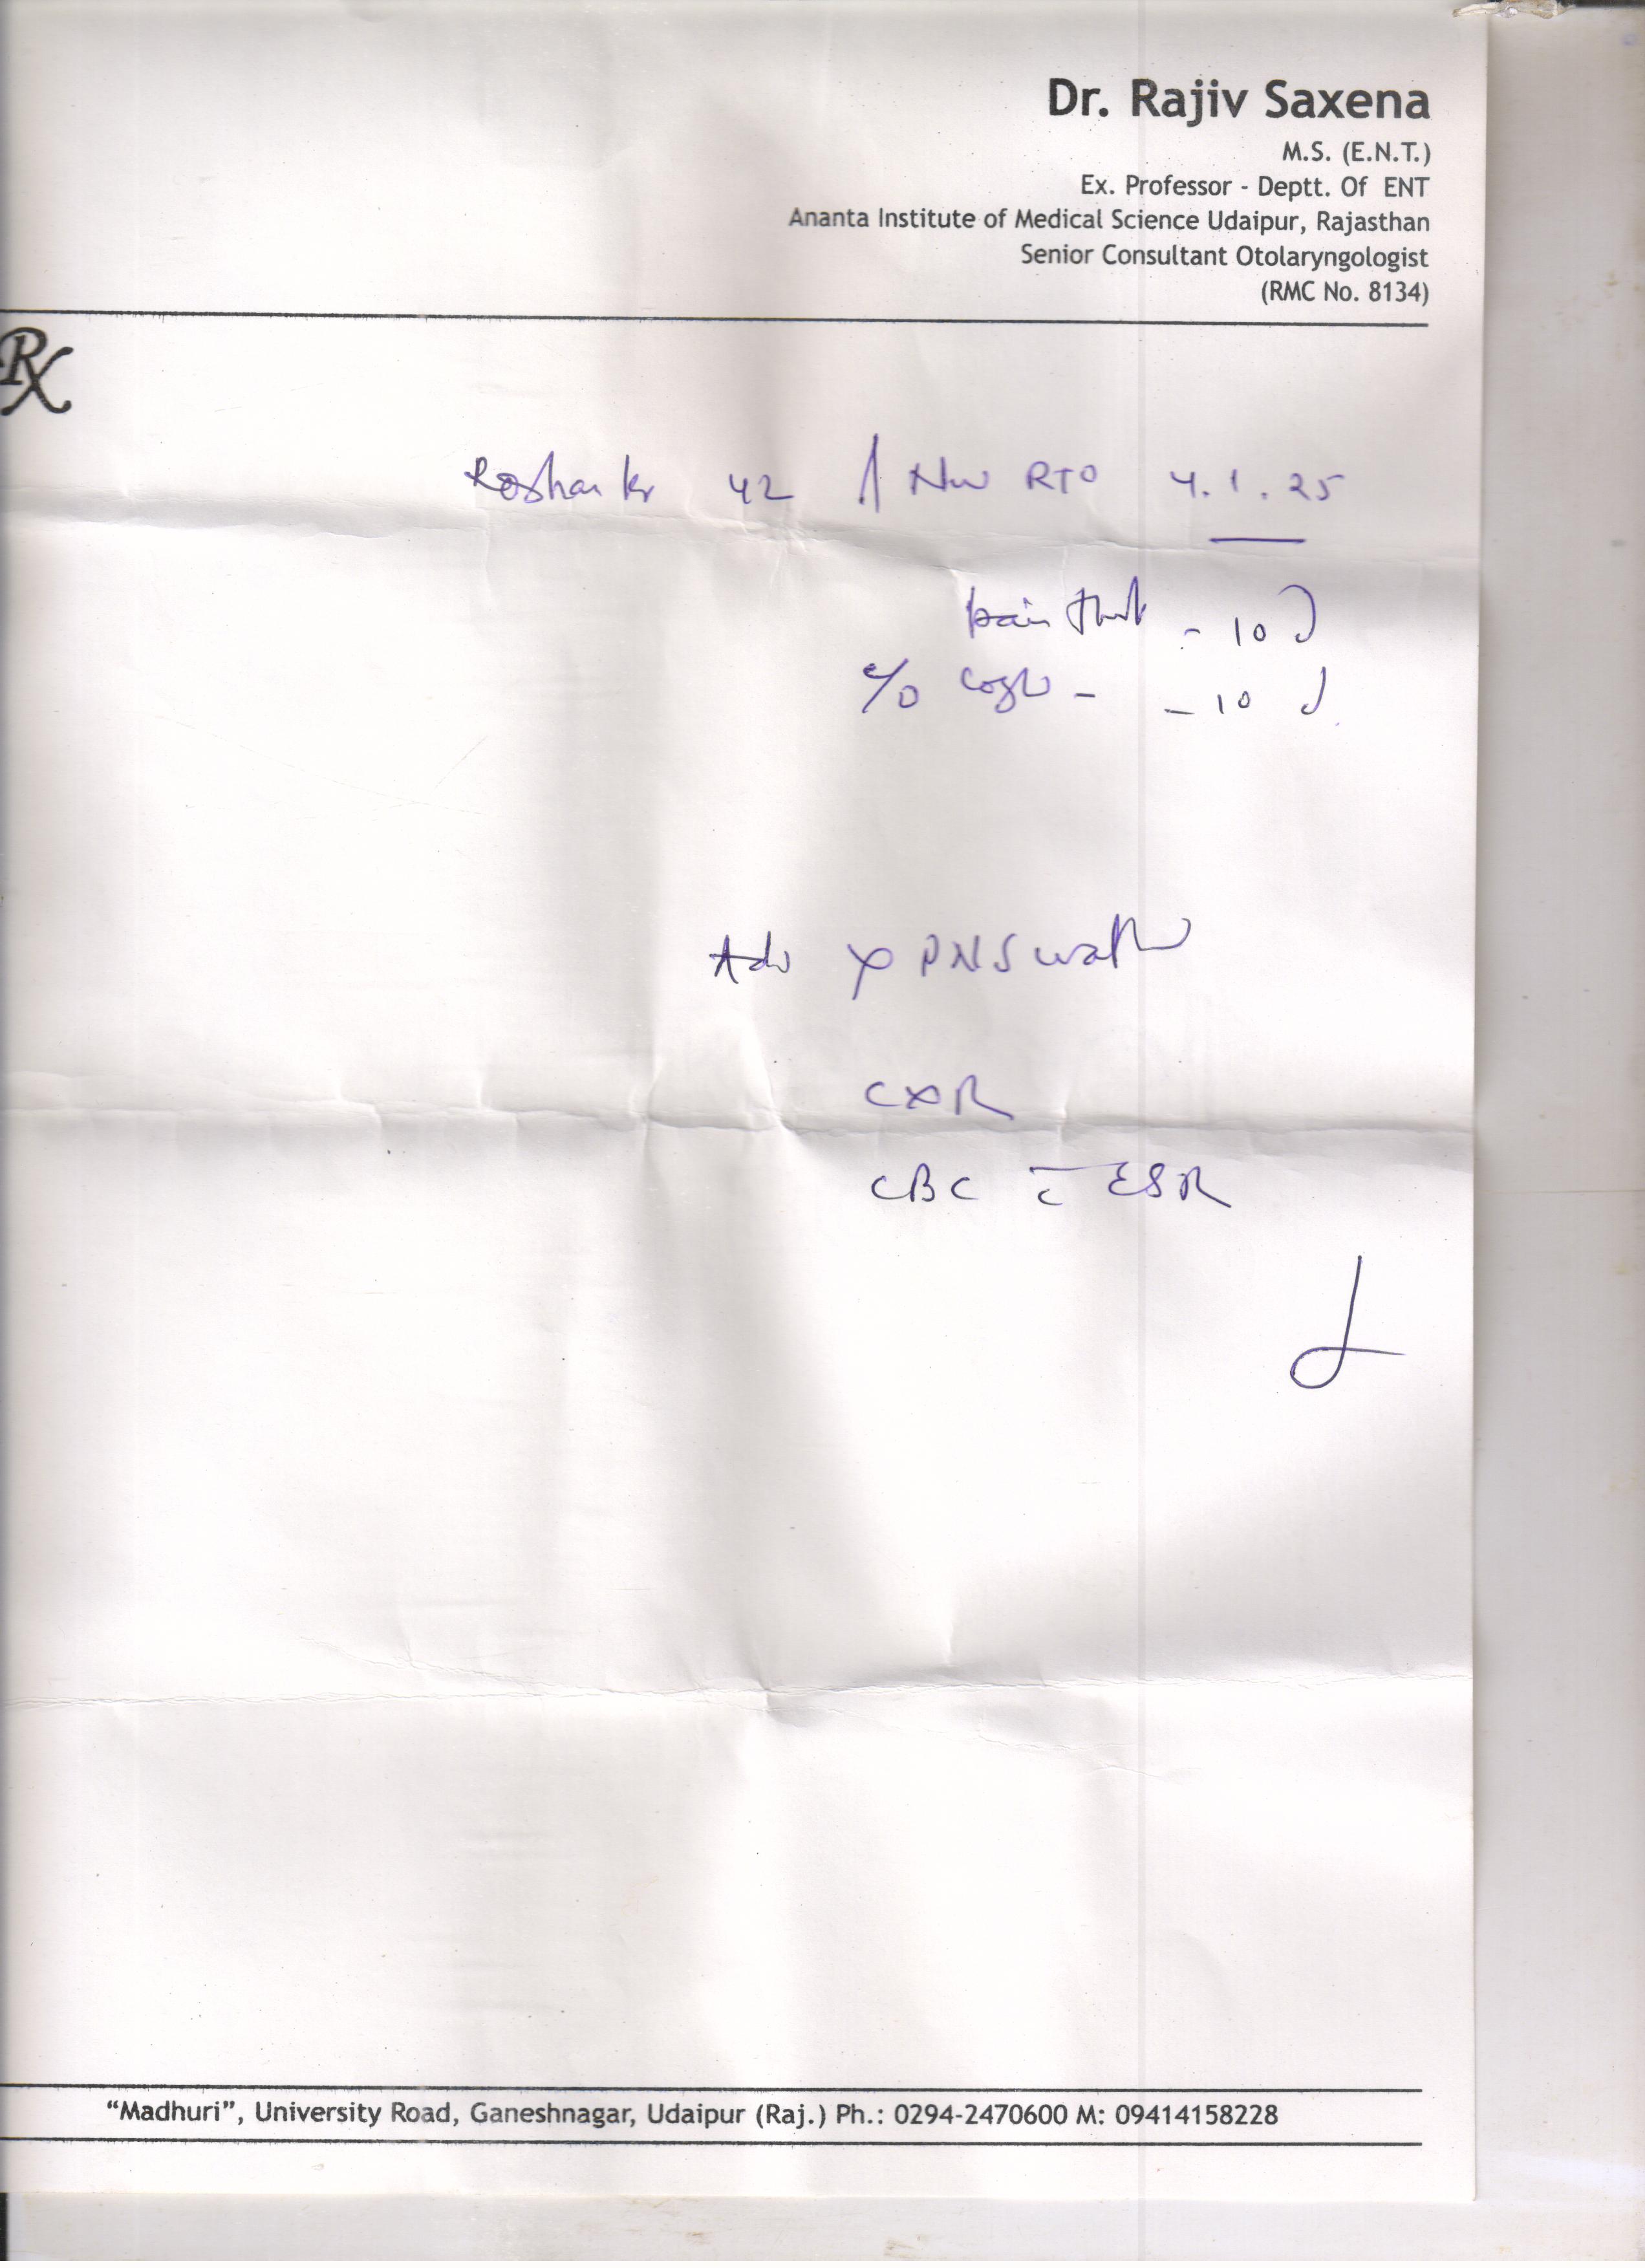 Dr. Rajiv Saxena
M.S. (E.N.T.)
Ex. Professor - Deptt. Of ENT
Ananta Institute of Medical Science Udaipur, Rajasthan
Senior Consultant Otolaryngologist
(RMC No. 8134)
Rx
42 RTO 4.1.25
pain throat - 10 d
c/o cough - - 10 d
Adv X PNS
CXR
CBC c̄ ESR
“Madhuri”, University Road, Ganeshnagar, Udaipur (Raj.) Ph.: 0294-2470600 M: 09414158228